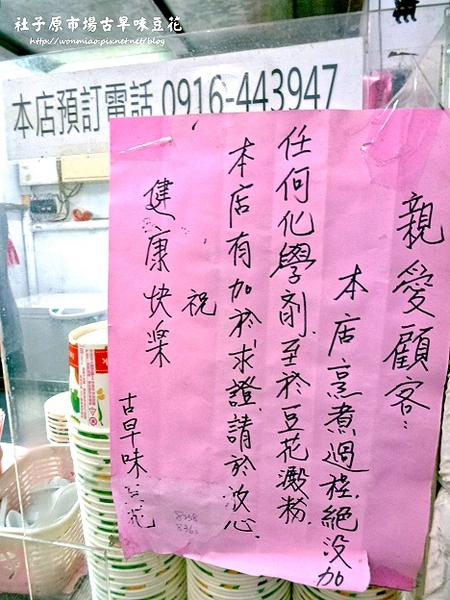 社子原市場古早味豆花
http://wonmiao.pixnet.net/blog
本店預訂電話 0916-443947
親愛顧客：
本店烹煮過程.絕沒加
任何化學劑.至於豆花澱粉.
本店有加於求證.請於放心.
祝
健康快樂
古早味豆花